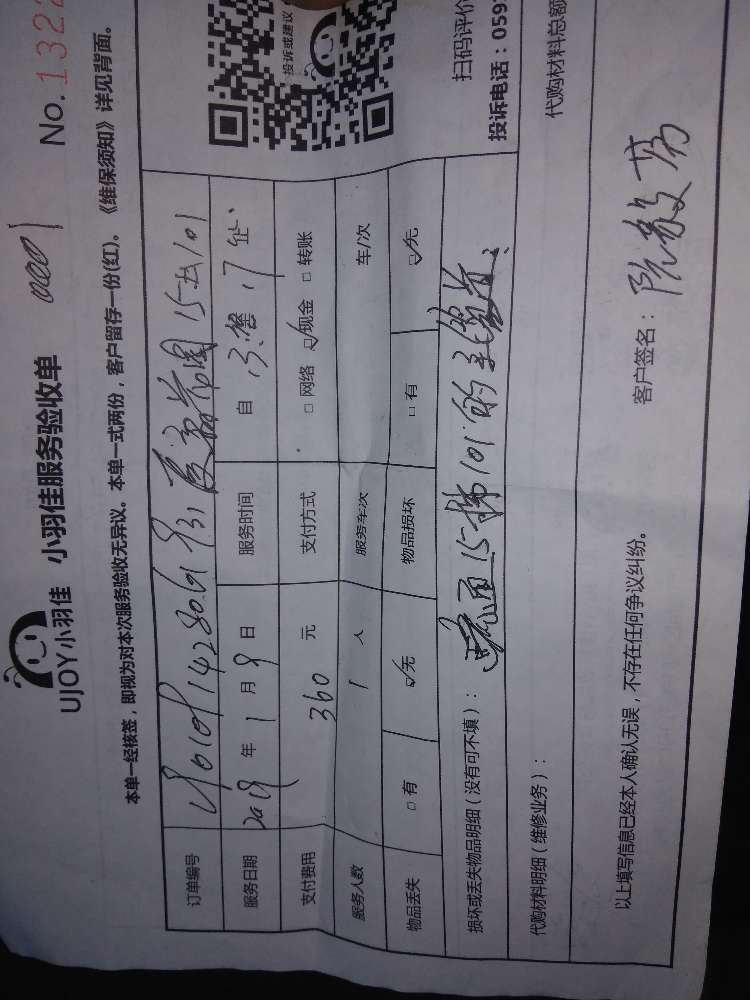 UJOY小羽佳 小羽佳服务验收单 0001 No.132
本单一经核签，即视为对本次服务验收无异议。本单一式两份，客户留存一份(红)。《维保须知》详见背面。
订单编号
服务日期 2019 年 1 月 9 日 服务时间 自
支付费用 360 元 支付方式 □网络 ☑现金 □转账
服务人数 1 人 服务车次 车/次
物品丢失 □有 ☑无 物品损坏 □有 ☑无
损坏或丢失物品明细（没有可不填）： 疏通15梯101的主管道、
代购材料明细（维修业务）： 代购材料总额
以上填写信息已经本人确认无误，不存在任何争议纠纷。 客户签名：
投诉或建议
扫码评价
投诉电话：059